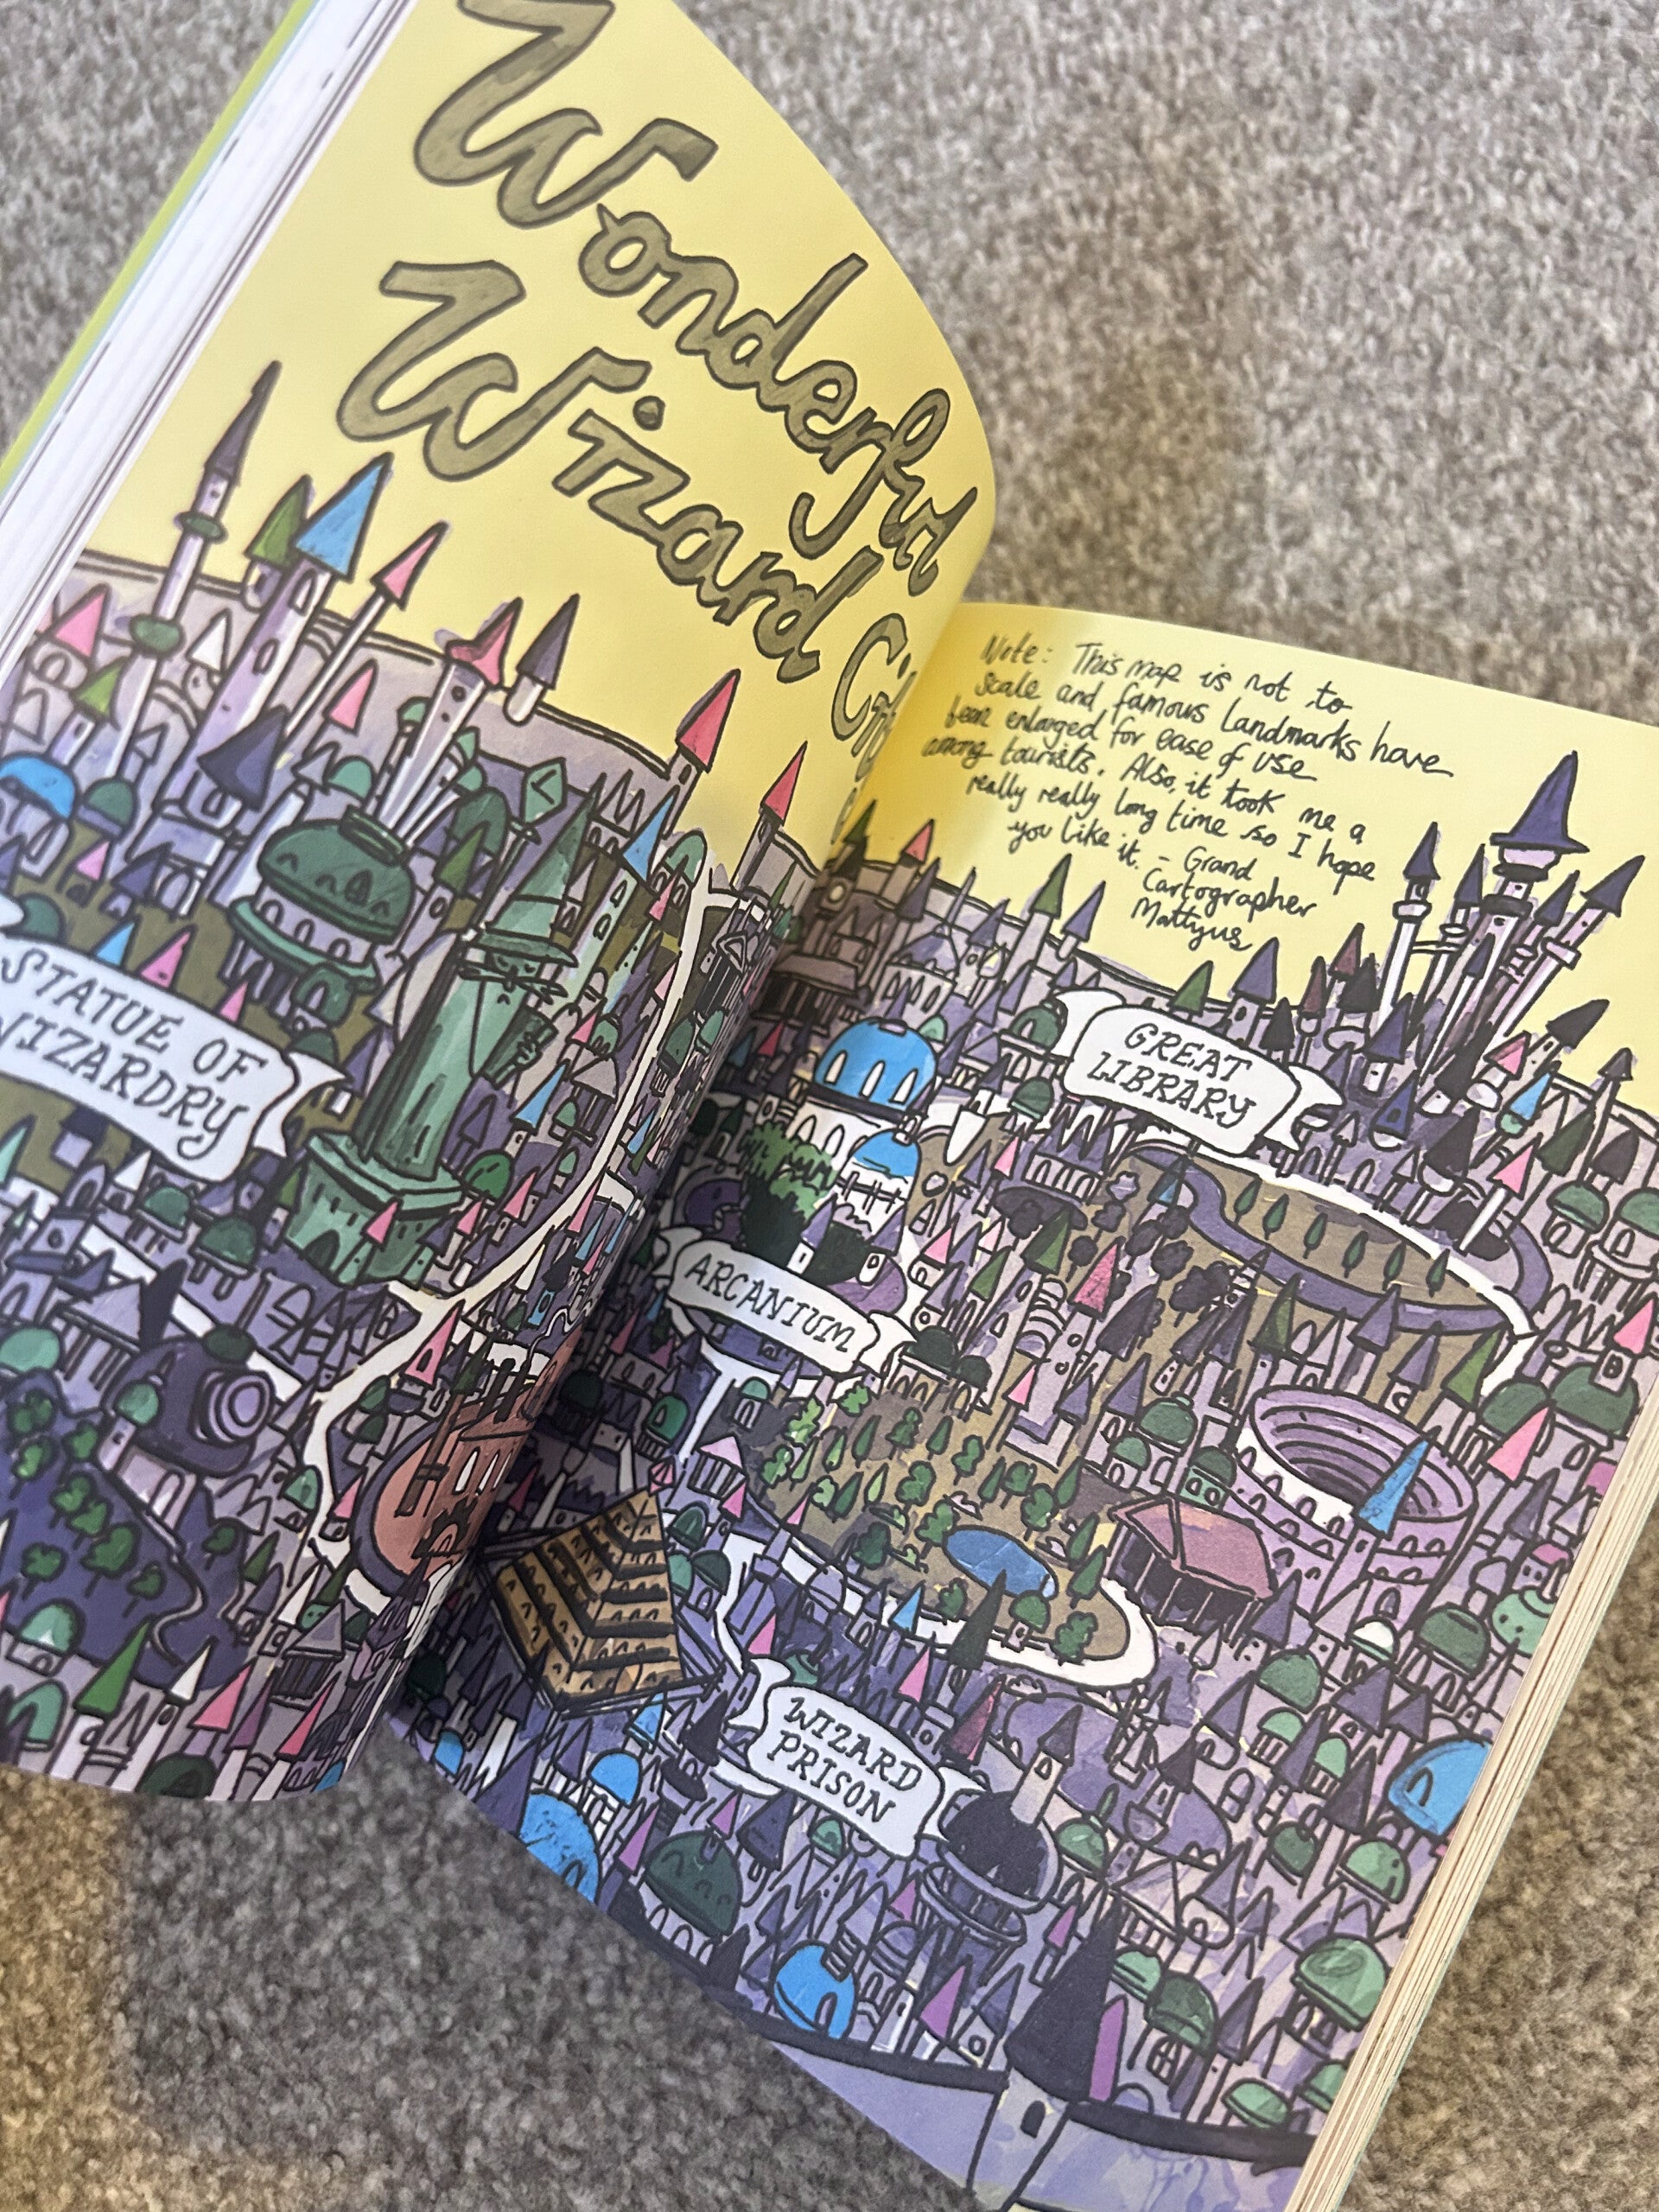 Wonderful
Wizard City
Note: This map is not to
scale and famous landmarks have
been enlarged for ease of use
among tourists. Also, it took me a
really really long time so I hope
you like it. - Grand
Cartographer
Mattyus
STATUE OF
WIZARDRY
GREAT
LIBRARY
ARCANIUM
WIZARD
PRISON